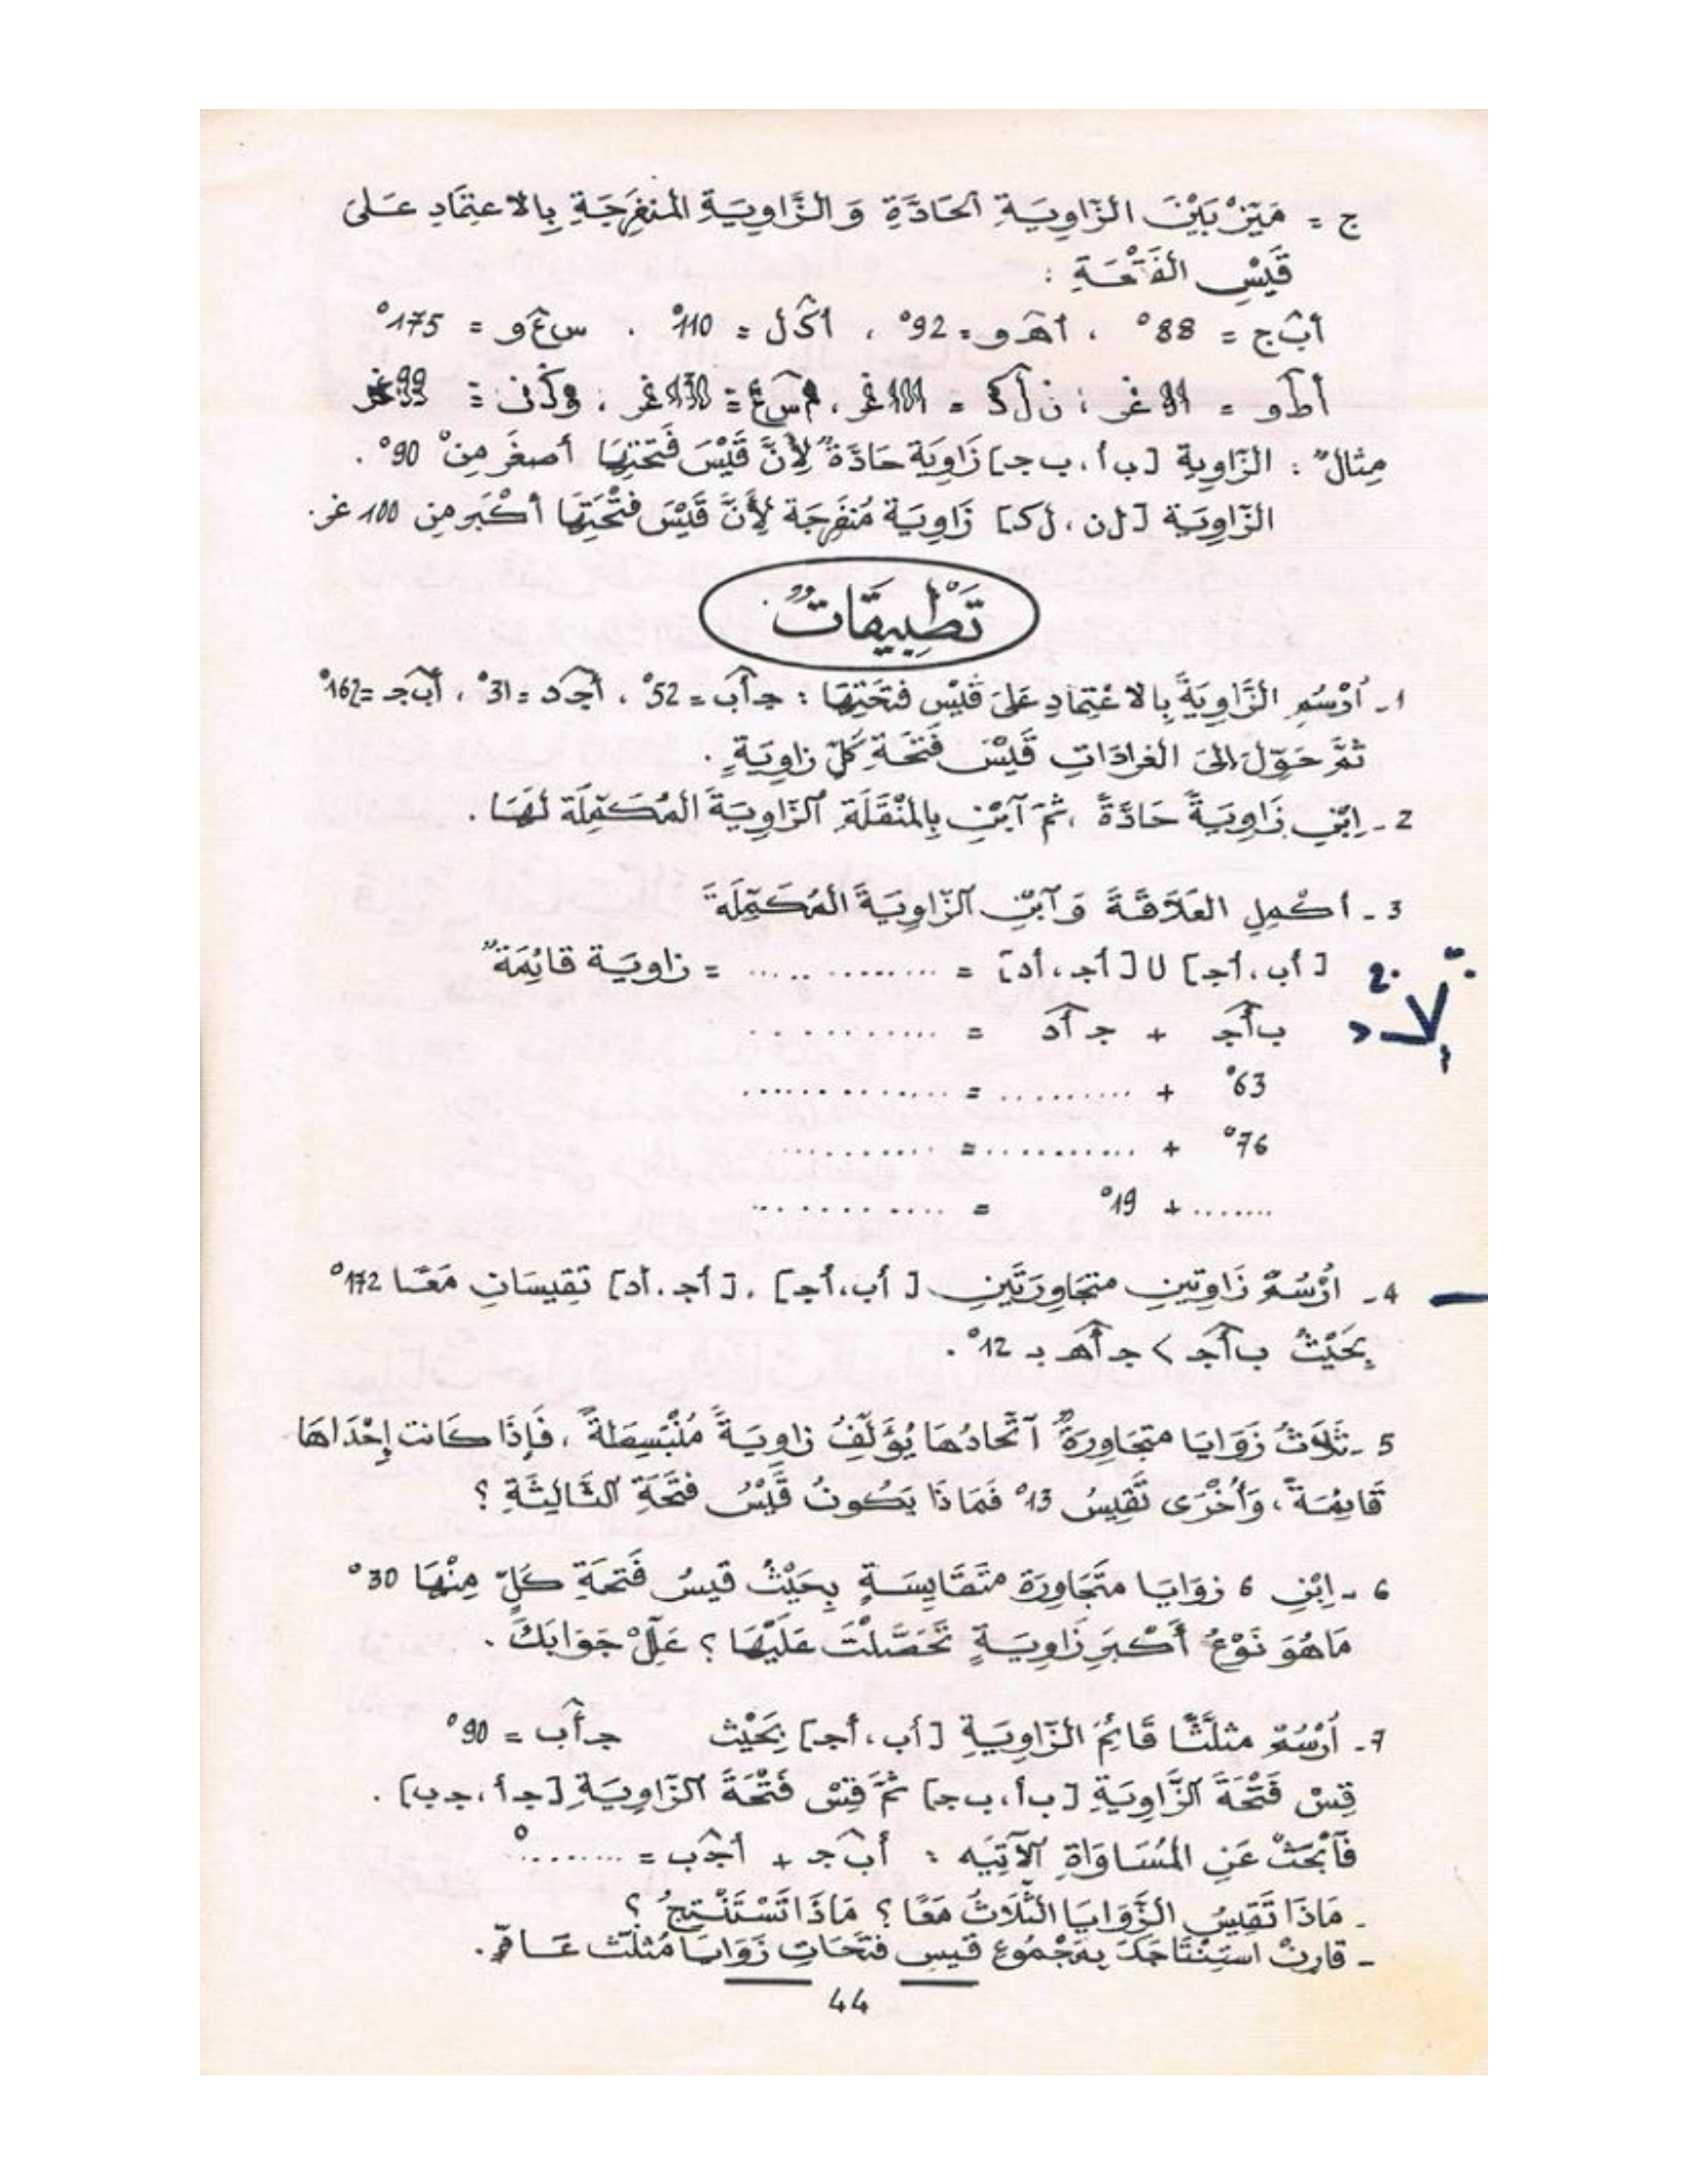 ج = مَيِّزْ بَيْنَ الزَّاوِيَةِ الحَادَّةِ وَ الزَّاوِيَةِ المُنفَرِجَةِ بِالاعتِمَادِ عَلَى
قَيْسِ الفَتْحَةِ :
أب̂ج = 88° ، أه̂و = 92° ، أك̂ل = 110° ، س ع̂ و = 175°
أط̂و = 91 غر ؛ ن ل̂ ك = 101 غر ، م س̂ ع = 130 غر ؛ و ذ̂ ن = 99 غر
مِثال : الزّاوية [ب أ ، ب ج] زَاوِيَة حَادَّةٌ لِأَنَّ قَيْسَ فَتحَتِهَا أصغَر مِنْ 90° .
الزّاوِيَة [ل ن ، ل ك] زَاوِيَة مُنفَرِجَة لِأَنَّ قَيْسَ فتْحَتِهَا أكْبَر مِن 100 غر .
تَطْبِيقَاتٌ
1 - اُرْسُمِ الزَّاوِيَةَ بِالاعْتِمَادِ عَلَى قَيْسِ فتحَتِهَا : ج أ̂ ب = 52° ، أج̂د = 31° ، أب̂ج = 162°
ثمَّ حَوِّل إلى الغرادَاتِ قَيْسَ فَتحَةِ كلّ زاوِيَةٍ .
2 - اِبْنِ زَاوِيَةً حَادَّةً ، ثمَ آبْنِ بِالمنْقَلَةِ الزّاوِيَةَ المُكَمِّلَة لهَا .
3 - أكْمِلِ العَلَاقَةَ وَ آبْنِ الزّاوِيَةَ المُكَمِّلَةَ
[أب ، أج] U [أج ، أد] = .................. = زاوية قائِمَةٌ
ب أ̂ ج + ج أ̂ د = ............
63° + .......... = ................
76° + ............ = ............
........ + 19° = ............
4 - اُرْسُمْ زَاوِتينِ متجَاوِرَتَينِ [أب ، أج] ، [أج ، أد] تقِيسَانِ مَعًا 172°
بِحَيْثُ ب أ̂ ج > ج أ̂ ه بـ 12° .
5 - ثَلَاثُ زَوَايَا متجَاوِرَةٌ آتِّحادُهَا يُؤَلِّفُ زاوِيَةً مُنْبَسِطَةً ، فَإِذَا كَانت إحْدَاهَا
قَائِمَةً ، وَأُخْرَى تَقِيسُ 13° فَمَاذَا يَكُونُ قَيْسُ فتْحَةِ الثَّالِثَةِ ؟
6 - اِبْنِ 6 زوَايَا متَجَاوِرَة متَقَايِسَةٍ بِحَيْثُ قيسُ فَتحَةِ كَلٍّ مِنْهَا 30°
مَاهُوَ نَوْعُ أَكْبَرِ زَاوِيَةٍ تَحَصَّلْتَ عَلَيْهَا ؟ عَلِّلْ جَوَابَكَ .
7 - اُرْسُمْ مثلَّثًا قَائِمَ الزَّاوِيَةِ [أب ، أج] بِحَيْث ج أ̂ ب = 90°
قِسْ فَتْحَةَ الزَّاوِيَةِ [ب أ ، ب ج] ثمَّ قِسْ فَتْحَةَ الزّاوِيَةِ [ج أ ، ج ب] .
فَآبْحَثْ عَنِ المُسَاوَاةِ الآتِيَه : أب̂ج + أج̂ب = ........°
- مَاذَا تَقِيسُ الزَّوَايَا الثَّلَاثُ مَعًا ؟ مَاذَا تَسْتَنْتِجُ ؟
- قارِنْ استِنْتَاجَكَ بِمَجْمُوعِ قيسِ فتَحَاتِ زَوَايَا مُثلَّث عَامٍّ .
44